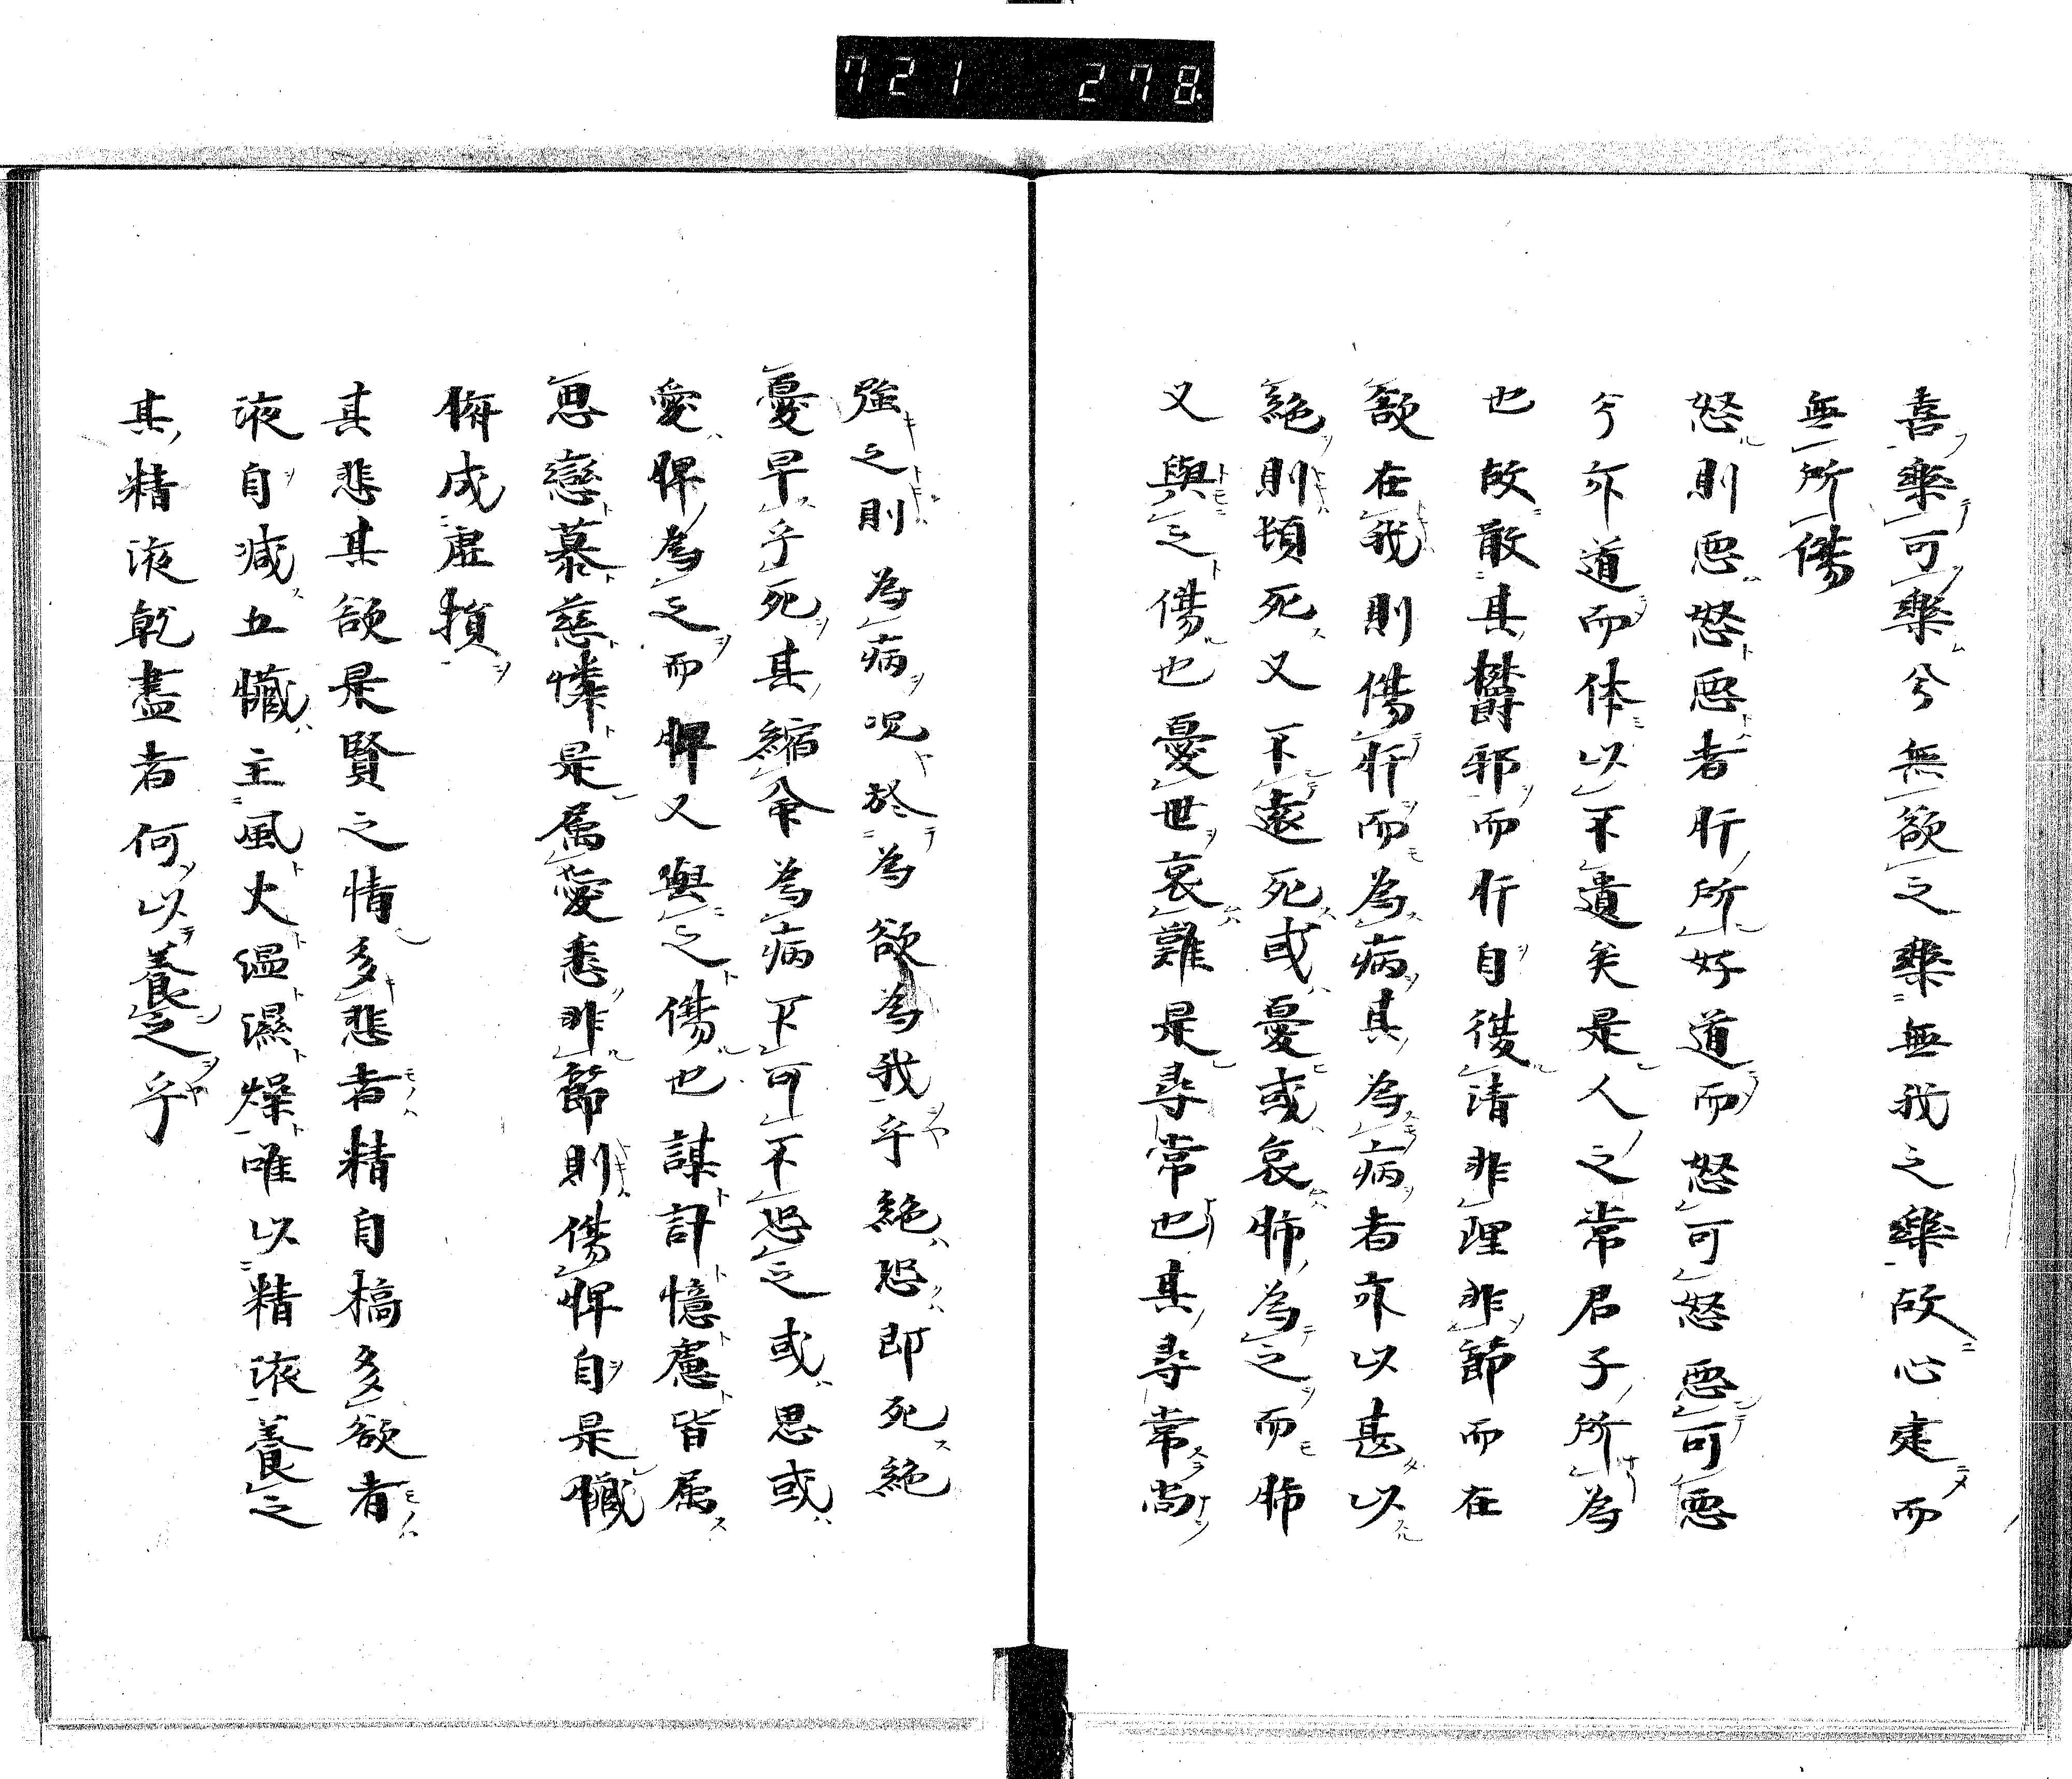 721 278
喜樂可樂兮無欲之樂無我之樂故心建而
無所傷
怒則悪怒悪者肝所好道而怒可怒悪可悪
兮亦道而体以不遺矣是人之常君子所為
也故散其欝邪而肝自復清非理非節而在
欲在我則傷肝而為病其為病者亦以甚以
絶則頓死又不遠死或憂或哀肺為之而肺
又與之傷也憂世哀難是尋常也其尋常尚
強之則為病况於為欲為我乎絶恐即死絶
憂早乎死其縮命為病不可不恐之或思或
愛脾為之而脾又與之傷也謀計憶慮皆属
思戀慕慈憐是属愛悉非節則傷脾自是臓
腑成虚損
其悲其欲是賢之情多悲者精自槁多欲者
液自減五臓主風火温濕燥唯以精液養之
其精液乾盡者何以養之乎